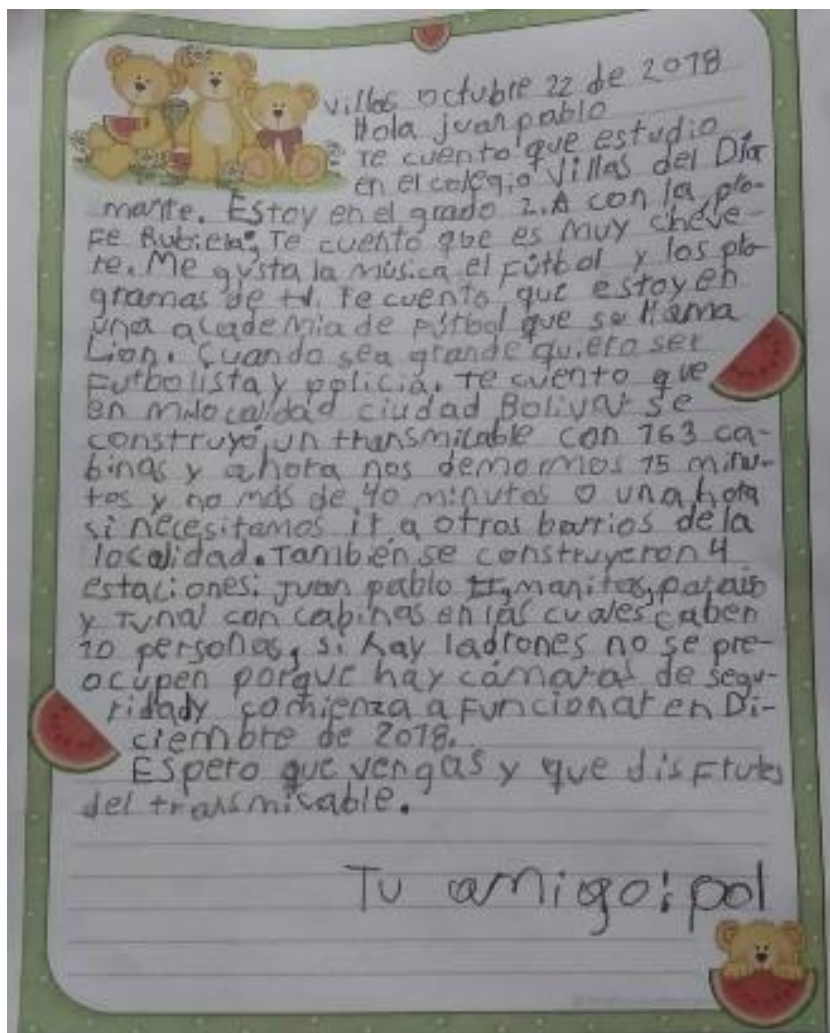 Villas octubre 22 de 2018
Hola juan pablo
Te cuento que estudio
en el colegio Villas del Dia
mante. Estoy en el grado 2.A con la pro-
Fe Rubiela; Te cuento que es muy cheve-
re. Me gusta la música el Fútbol y los pro
gramas de tv. Te cuento que estoy en
una academia de Fútbol que se llama
Lion. Cuando sea grande quiero ser
Futbolista y policía. Te cuento que
en mi localidad ciudad Bolivar se
construyó un transmicable con 163 ca-
binas y ahora nos demormos 15 minu-
tos y no más de 40 minutos o una hora
si necesitamos ir a otros barrios de la
localidad. También se construyeron 4
estaciones: Juan pablo II, manitas, paraiso
y Tunal con cabinas en las cuales caben
10 personas, si hay ladrones no se pre-
ocupen porque hay cámaras de segu-
ridad y comienza a Funcionar en Di-
ciembre de 2018.
Espero que vengas y que disFrutes
del transmicable.
Tu amigo: pol